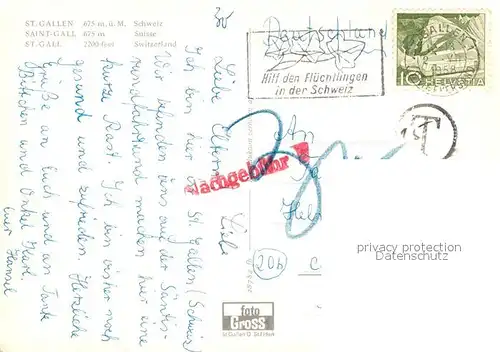 ST. GALLEN 675 m. ü. M. Schweiz
SAINT-GALL 675 m Suisse
ST. GALL 2200 feet Switzerland
Liebe Eltern! Liebe
Ich bin hier in St. Gallen (Schweiz)
Wir befinden uns auf der Säntis-
rundfahrt und machen hier eine
kurze Rast. Ich bin bisher noch
gesund und zufrieden. Herzliche
Grüße an Euch und an Tante
und Onkel Karl.
Euer Hansel
Deutschland
Hilf den Flüchtlingen
in der Schweiz
10 HELVETIA
T
Nachgebühr
An
(20b)
foto
Gross
St. Gallen
privacy protection
watermark